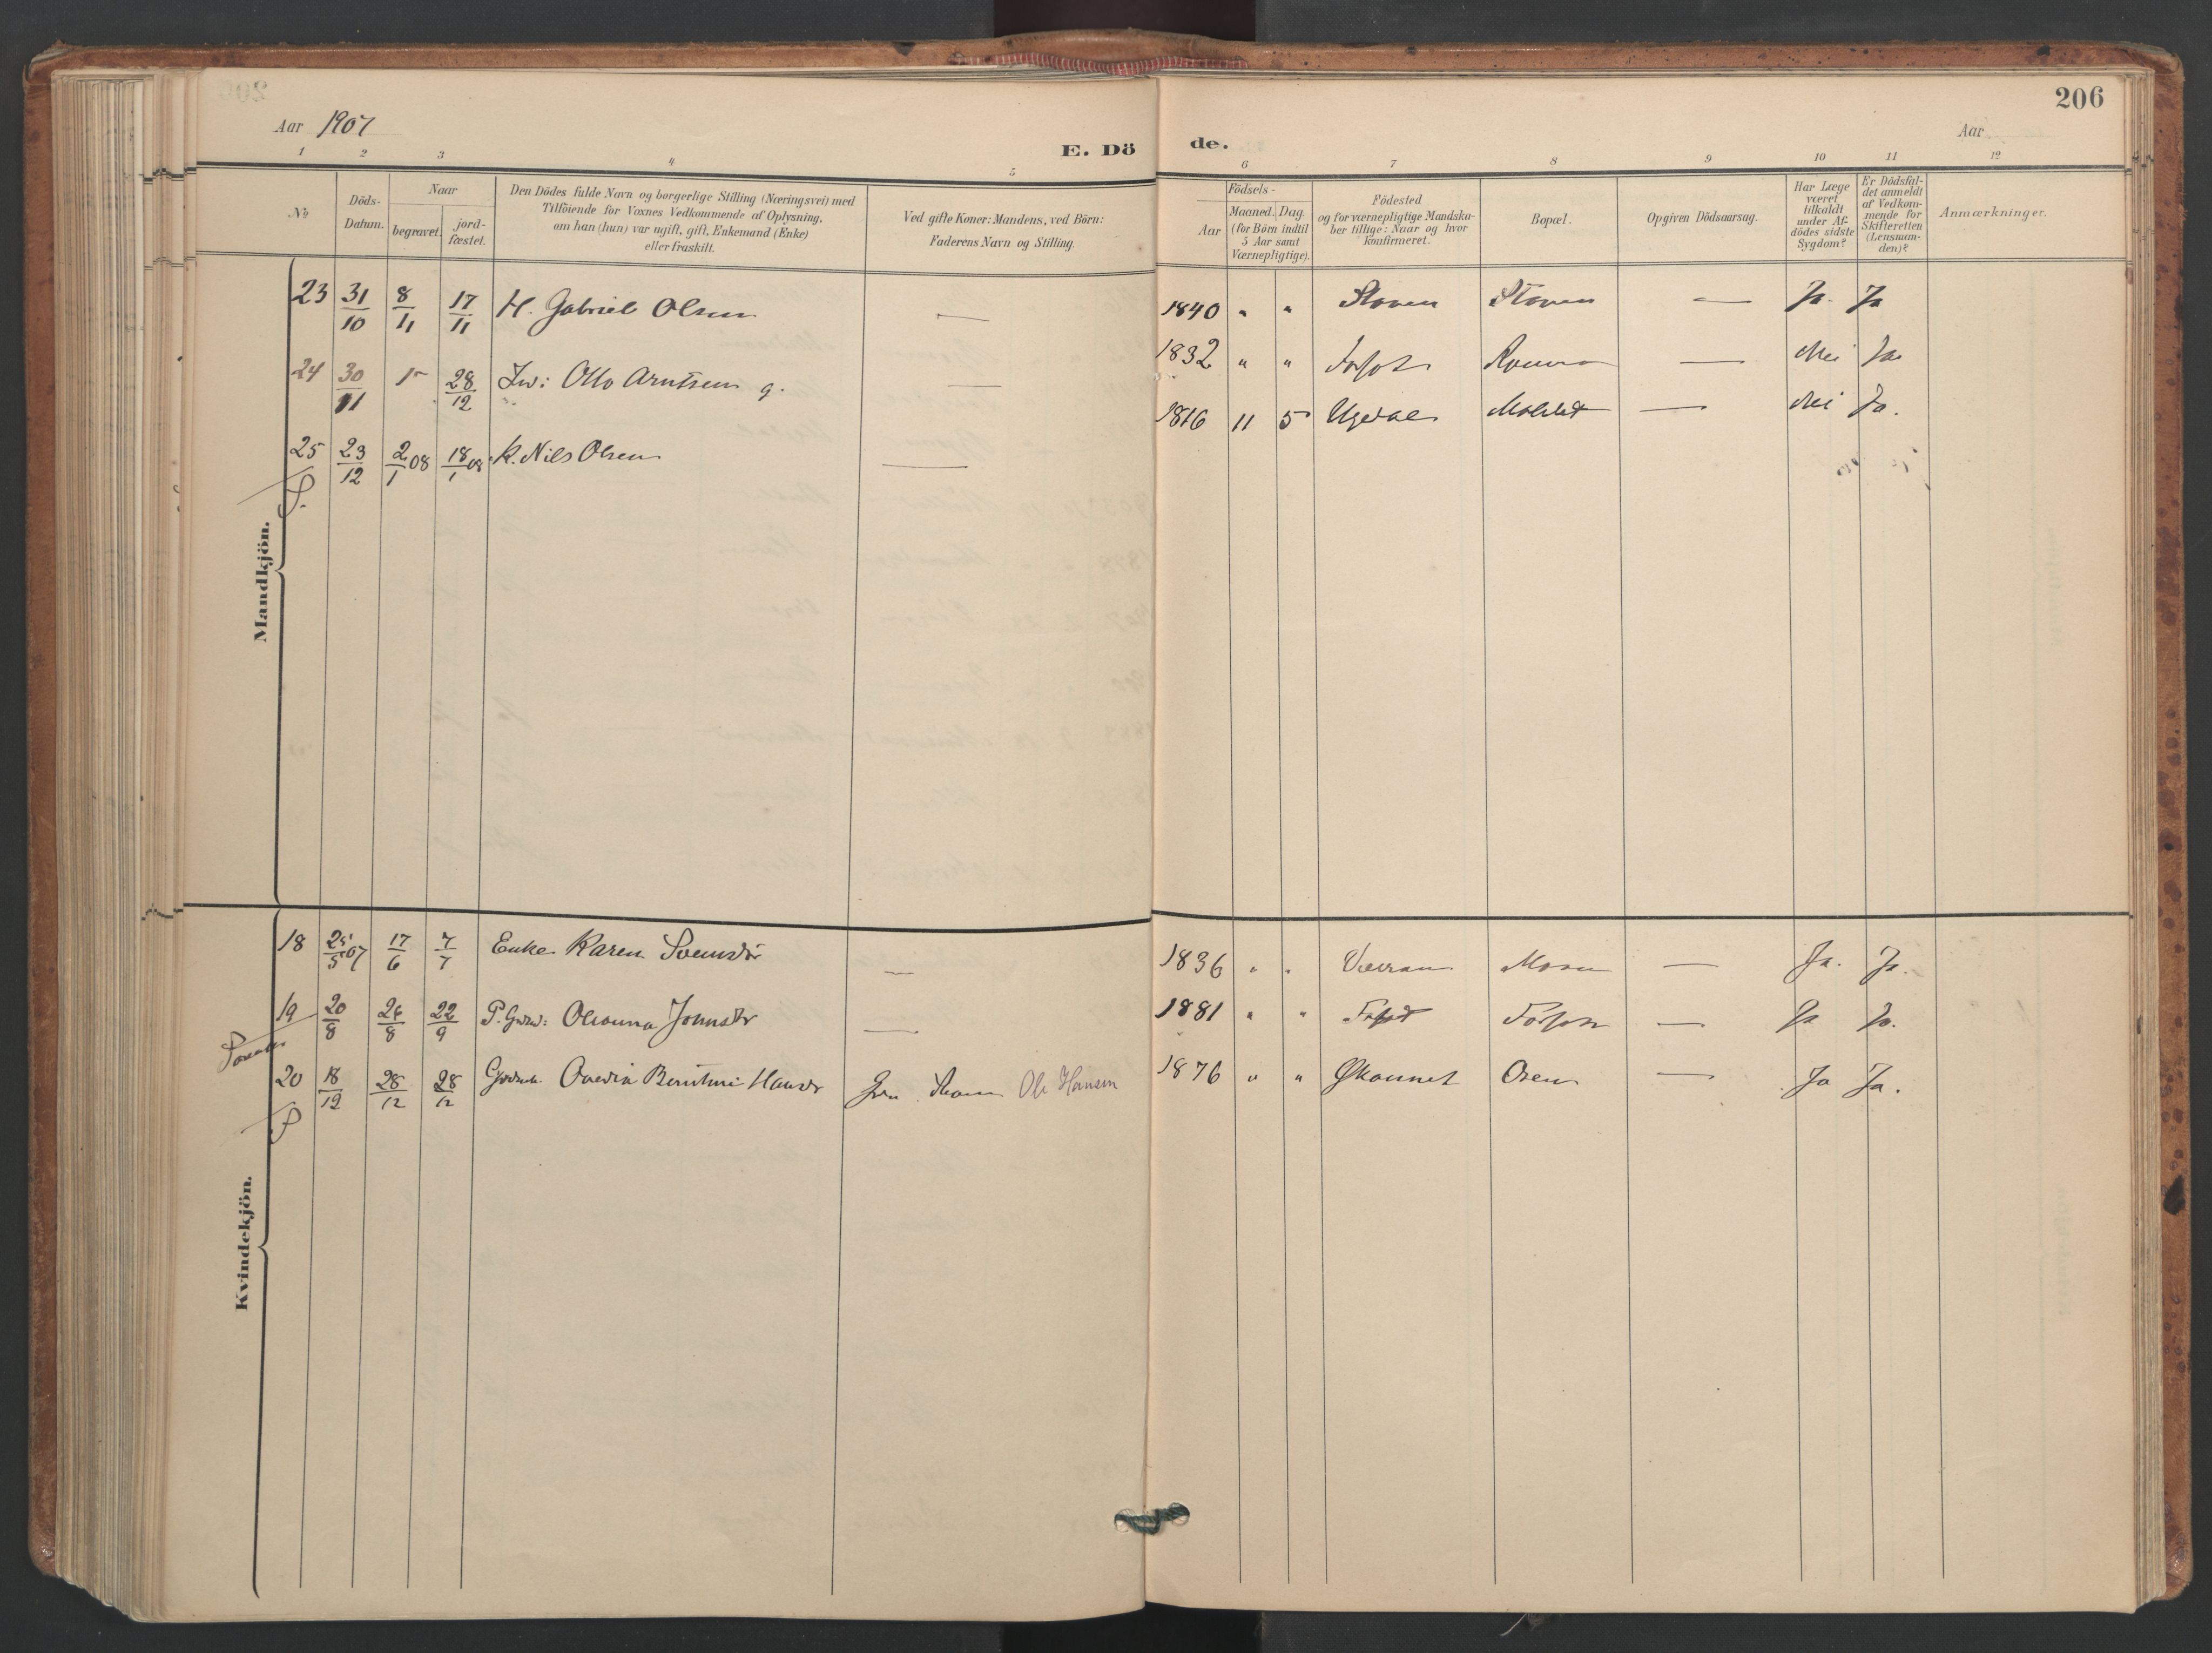 206
Aar 1907
Aar
E. Dö de.
1 2 3 4 5 6 7 8 9 10 11 12
No
Döds-Datum.
Naar
begravet.
jord-fæstet.
Den Dödes fulde Navn og borgerlige Stilling (Næringsvei) med
Tilföiende for Voxnes Vedkommende af Oplysning,
om han (hun) var ugift, gift, Enkemand (Enke)
eller fraskilt.
Ved gifte Koner: Mandens, ved Börn:
Faderens Navn og Stilling.
Födsels-
Aar
Maaned. Dag.
(for Börn indtil
5 Aar samt
Værnepligtige).
Födested
og for værnepligtige Mandska-
ber tillige: Naar og hvor
konfirmeret.
Bopæl.
Opgiven Dödsaarsag.
Har Læge
været
tilkaldt
under Af-
dödes sidste
Sygdom?
Er Dödsfal-
det anmeldt
af Vedkom-
mende for
Skifteretten
(Lensman-
den)?
Anmærkninger.
Mandkjön.
23 31/10 8/11 17/11 H. Gabriel Olsen — 1840 " " Støven Støven — Ja. Ja
24 30/11 15 28/12 Inds: Otto Arntsen g. — 1832 " " — Nei Ja
25 23/12 2/1 08 18/1 08 K. Nils Olsen — 1816 11 5 — Nei Ja.
P.
Kvindekjön.
18 25/5 07 17/6 7/7 Enke Karen Svensdr — 1836 " " — Ja. Ja.
19 20/8 26/8 22/9 P. Gmd: Johnsdr — 1881 " " — Ja Ja.
20 18/12 28/12 28/12 Hansdr Ole Hansen 1876 " " Osen — Ja Ja.
P